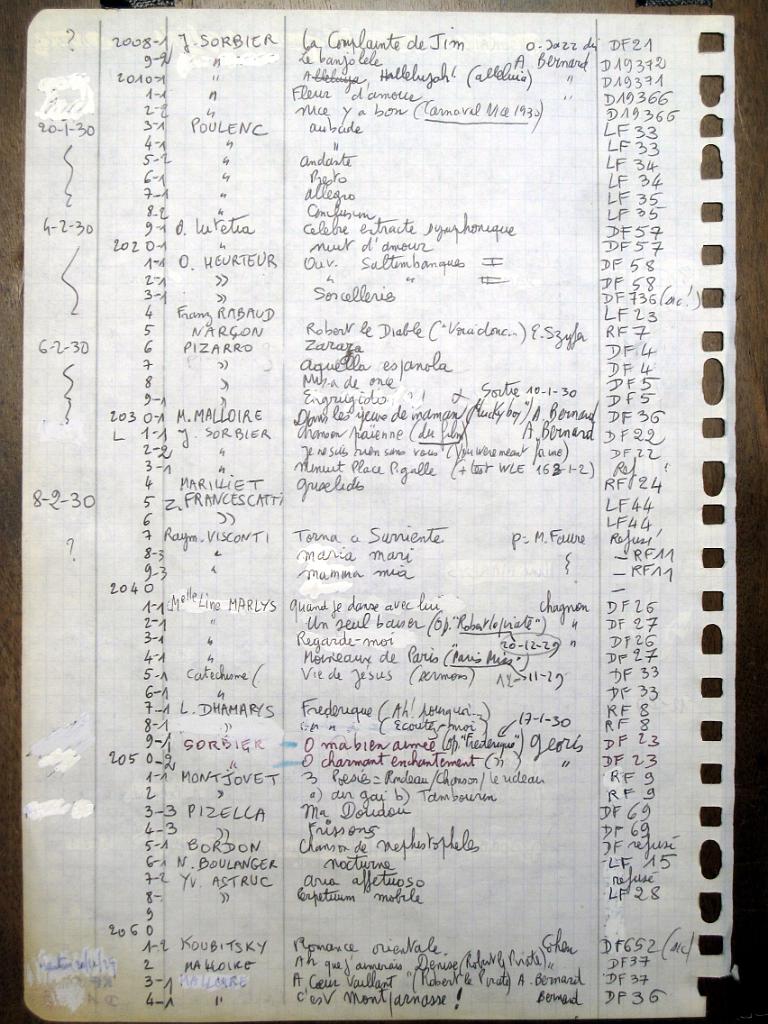 ? 2008-1 J. SORBIER La Complainte de Jim o. Jazz du DF21
9-2 " Le banjolele A. Bernard D19372
2010-1 " Hallelujah! (alléluia) " D19371
1-1 " Fleur d'amour " D19366
2-2 " Nice y a bon (Carnaval Nice 1930) D19366
20-1-30 3-1 POULENC aubade LF 33
4-1 " " LF 33
5-2 " andante LF 34
6-1 " Presto LF 34
7-1 " allegro LF 35
8-2 " Conclusion LF 35
4-2-30 9-1 O. Lutetia Celebre extracte symphonique DF57
2020-1 " nuit d'amour DF57
1-1 O. HEURTEUR Ouv. Saltimbanques I DF 58
2-1 " " " II DF 58
3-1 " Sorcelleries DF 736 (sic!)
4 Franz RABAUD LF 23
5 NARÇON Robert le Diable ("Voici donc...) E. Szyfer RF 7
6-2-30 6 PIZARRO Zaraza DF 4
7 " aquella espanola DF 4
8 " DF 5
9-1 " Engrugido Sortie 10-1-30 DF5
2030-1 M. MALLOIRE Dans les yeux de maman (Lucky boy) A. Bernard DF 36
L 1-1 J. SORBIER Chanson païenne (du film) A. Bernard DF 22
2-2 " Je ne suis rien sans vous (You were meant for me) DF 22
3-1 " Minuit Place Pigalle (+ test WLE 1-2) Ref "
4 MARILLIET Griselidis RF 24
8-2-30 5 Z. FRANCESCATTI LF44
6 " LF44
? 7 Raym. VISCONTI Torna a Surriente p= M. Faure Refusé
8-3 " maria mari — RF11
9-3 " mamma mia — RF11
2040 —
1-1 Melle Line MARLYS quand je danse avec lui Chagnon DF 26
2-1 " Un seul baiser (Op. "Robert le pirate") " DF 27
3-1 " Regarde-moi 20-12-29 " DF26
4-1 " Moineaux de Paris ("Paris Miss") DF 27
5-1 Catechisme ( Vie de Jesus (sermons) 12-11-29 DF 33
6-1 " DF 33
7-1 L. DHAMARYS Frederique (Ah! pourquoi...) RF 8
8-1 " (Ecoutez-moi) 17-1-30 RF 8
9-1 SORBIER O ma bien aimée (Op. "Frederique") Georis DF 23
2050-2 " O charmant enchantement (") " DF 23
1-1 MONTJOVET 3 Poesies= Rondeau/Chanson/le rideau RF 9
2 " a) air gai b) Tambourin RF 9
3-3 PIZELLA Ma Doudou DF 69
4-3 " Frissons DF 69
5-1 BORDON Chanson de Mephistopheles DF refusé
6-1 N. BOULANGER nocturne LF 15
7-2 YV. ASTRUC aria affetuoso refusé
8- " Perpetuum mobile LF 28
9
2060
1-2 KOUBITSKY Romance orientale Cohen DF652 (sic)
2 MALLOIRE Ah que j'aimerais Denise (Robert le Pirate) " DF37
3-1 MALLOIRE A Cœur Vaillant " (Robert le Pirate) A. Bernard DF 37
4-1 " c'est Montparnasse! Bernard DF 36